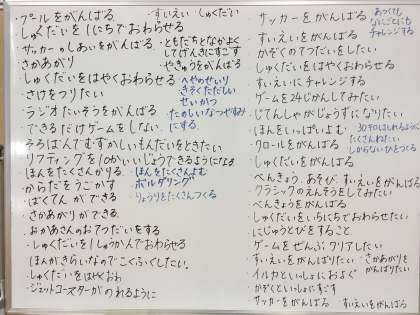 プールをがんばる
すいえい しゅくだい
しゅくだいを1にちでおわらせる
サッカーのしあいをがんばる
・ともだちとなかよくしてげんきにすごす
さかあがり
・やきゅうをがんばる
しゅくだいをはやくおわらせる
へやのせいり
きそくただしいせいかつ
さけをつりたい
ラジオたいそうをがんばる
・たのしいなつやすみにする
できるだけゲームをしない
そろばんでむずかしいもんだいをときたい
リフティングを10かいいじょうできるようになる
ほんをたくさんかりる
・ほんをたくさんよむ
からだをうごかす
ボルダリング
ばくてんができる
・りょうりをたくさんつくる
・さかあがりができる
・おかあさんのおてつだいをする
・しゅくだいを1しゅうかんでおわらせる
・ほんがきらいなのでこくふくしたい。
・しゅくだいをはやくおわ
・ジェットコースターがのれるように
サッカーをがんばる
あつくてもなにごとにもチャレンジする
すいえいをがんばる
かぞくのてつだいをしたい
しゅくだいをはやくおわらせる
すいえいにチャレンジする
ゲームを24じかんしてみたい
じてんしゃがじょうずになりたい
ほんをいっぱいよむ
クロールをがんばる
たくさんねたい
しからないひとつくる
しゅくだいをがんばる
べんきょう、あそび、すいえいをがんばる
クラシックのえんそうをしてみたい
べんきょうをがんばる
しゅくだいをいちにちでおわらせたい
にじゅうとびをすること
ゲームをぜんぶクリアしたい
すいえいをがんばりたい
さかあがりをがんばりたい
イルカといっしょにおよぐ
かぞくといっしょにすごす
サッカーをがんばる
・すいえいをがんばる